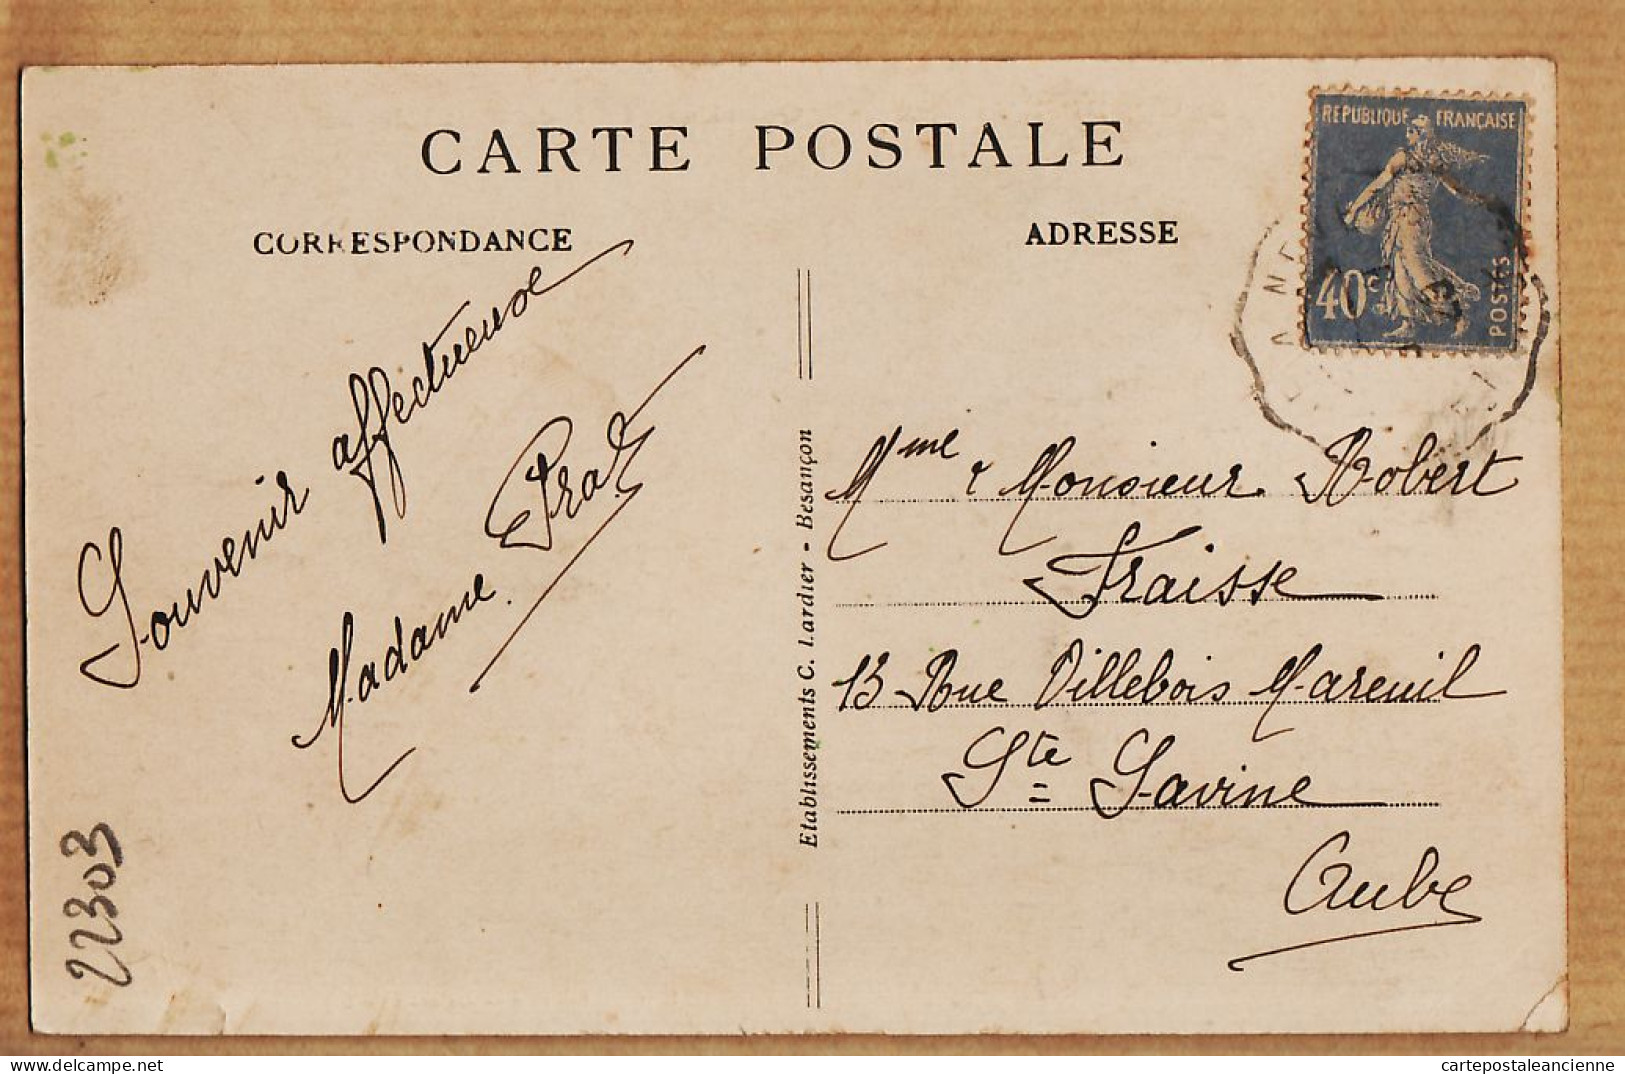 CARTE POSTALE
CORRESPONDANCE
ADRESSE
REPUBLIQUE FRANÇAISE
40c
POSTES
Souvenir affectueux
Madame Prat
Etablissements C. Lardier - Besançon
Mme & Monsieur Robert
Fraisse
13 Rue Villebois Mareuil
Ste Savine
Aube
22303
cartepostaleancienne